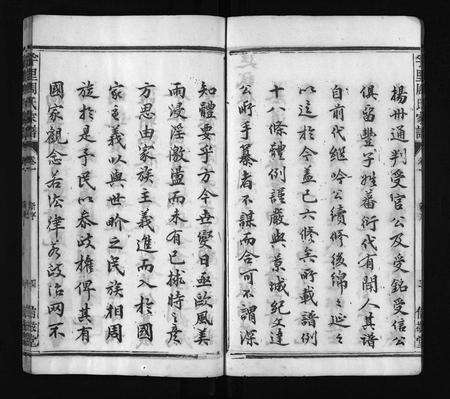 楊州通判受官公及受銘受信公
俱留豐子姓蕃衍代有聞人其譜
自前代繼吟公續修後綿之延之
以迄於今蓋已六修矣所載譜例
十八條體例謹嚴與景城紀文達
公所手纂者不謀而合可不謂深
知體要乎方今世變日亟歐風美
雨浸淫激盪而未有已球時之彥
方思由家族主義進而入於國
家主義以與世界之民族相周
旋於是予民以參政權俾其有
國家觀念若法律若政治罔不